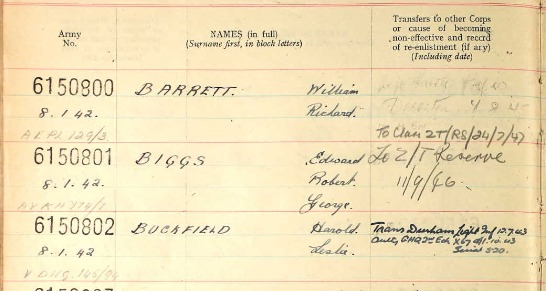 Army
No.
NAMES (in full)
(Surname first, in block letters)
Transfers to other Corps
or cause of becoming
non-effective and record
of re-enlistment (if any)
(Including date)
6150800 BARRETT. William
8.1.42. Richard.
To Class ZT/RS/24/7/47
6150801 BIGGS Edward To Z/T Reserve
8.1.42. Robert. 11/9/46.
George.
6150802 BUCKFIELD Harold. Trans Durham Light Inf 12.7.43
8.1.42 Leslie. Auth, GHQ 2nd Ech X67 d/1.10.43
Serial 520.